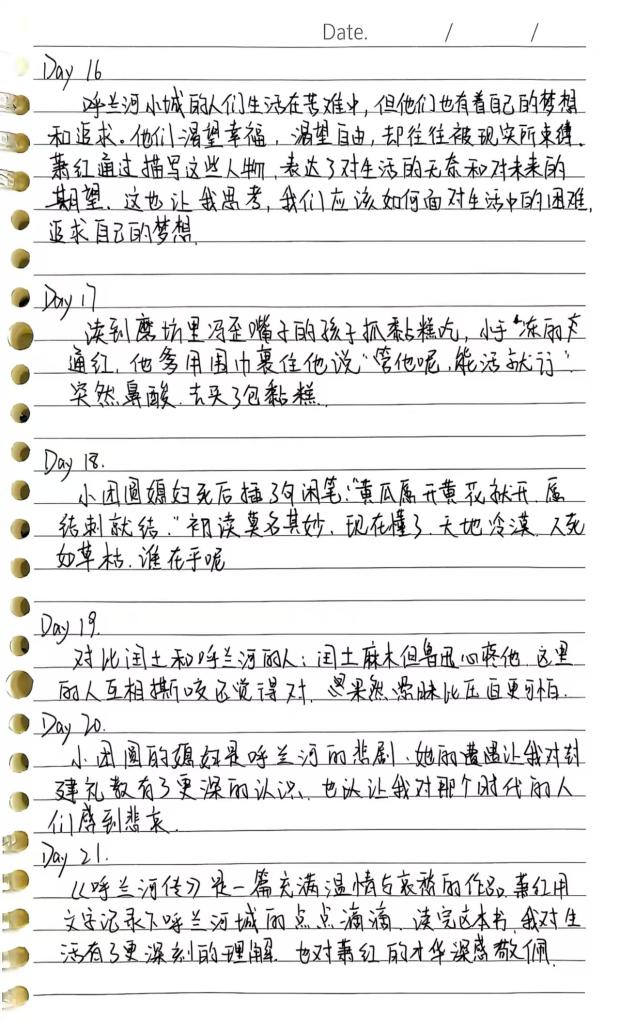 Date. / /
Day 16
呼兰河小城的人们生活在苦难中，但他们也有着自己的梦想
和追求。他们渴望幸福，渴望自由，却往往被现实所束缚。
萧红通过描写这些人物，表达了对生活的无奈和对未来的
期望。这也让我思考，我们应该如何面对生活中的困难，
追求自己的梦想
Day 17
读到磨坊里冯歪嘴子的孩子抓黏糕吃，小手冻的
通红，他爹用围巾裹住他说“管他呢，能活就行”
突然鼻酸，去买了包黏糕.
Day 18.
小团圆媳妇死后插了句闲笔：“黄瓜愿开黄花就开，愿
结刺就结.”初读莫名其妙，现在懂了，天地冷漠，人死
如草枯，谁在乎呢
Day 19.
对比闰土和呼兰河的人：闰土麻木但鲁迅心疼他，这里
的人互相撕咬还觉得对，果然愚昧比压迫更可怕.
Day 20.
小团圆的媳妇是呼兰河的悲剧，她的遭遇让我对封
建礼教有了更深的认识，也让我对那个时代的人
们感到悲哀.
Day 21.
《呼兰河传》是一篇充满温情与哀愁的作品，萧红用
文字记录下呼兰河城的点点滴滴，读完这本书，我对生
活有了更深刻的理解，也对萧红的才华深感敬佩.